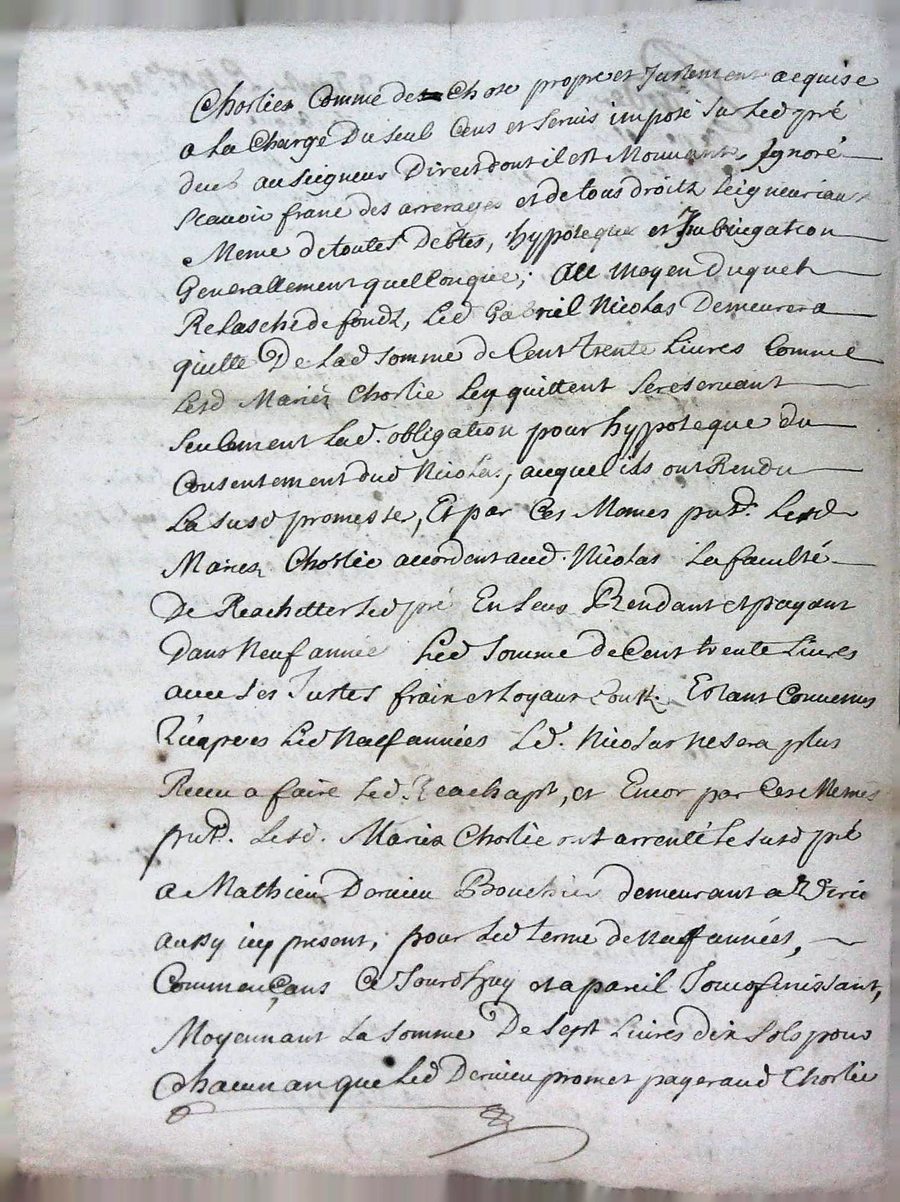 Chorlier Comme de Chose propre et Justement acquise
a La Charge Du seul Cens et servis imposé sur Led pré
deub au seigneur Direct dont il est Mouvant, Ignoré
scavoir franc des arrerages et de tous droitz seigneuriaux
Meme de toutes Debtes, hypoteque et Imbrigation
Generallement quelconque; au moyen duquel
Relasche de fondz, Led Gabriel Nicolas Demeurera
quitte De Lad somme de Cent trente Livres Comme
Lesd Mariés Chorlie Len quittent se reservant
seulement Lad. obligation pour hypoteque du
Consentement dud Nicolas, auquel ils ont Rendu
La susd promesse, Et par Ces Memes pntd. Lesd
Mariez Chorlie accordent aud. Nicolas La faculté
De Reachetter Led pré En Leur Rendant et payant
Dans Neuf année Lad somme de Cent trente Livres
avec ses Justes frair et Loyaux Coutz Estant Convenus
qu'apres Led Neuf années Led. Nicolas ne sera plus
Receu a faire Led. Reachapt, et Encor par Ces Memes
pntd. Lesd. Mariez Chorlie ont arrenté Le susd pré
a Mathieu Dervieu Bouchier demeurant a
aussy icy present, pour Led terme de Neuf années,
Commençans Ce Jourdhuy et a pareil Jour finissant,
Moyennant La somme De sept Livres dix sols pour
Chacun an que Led Dervieu promet payer aud Chorlie